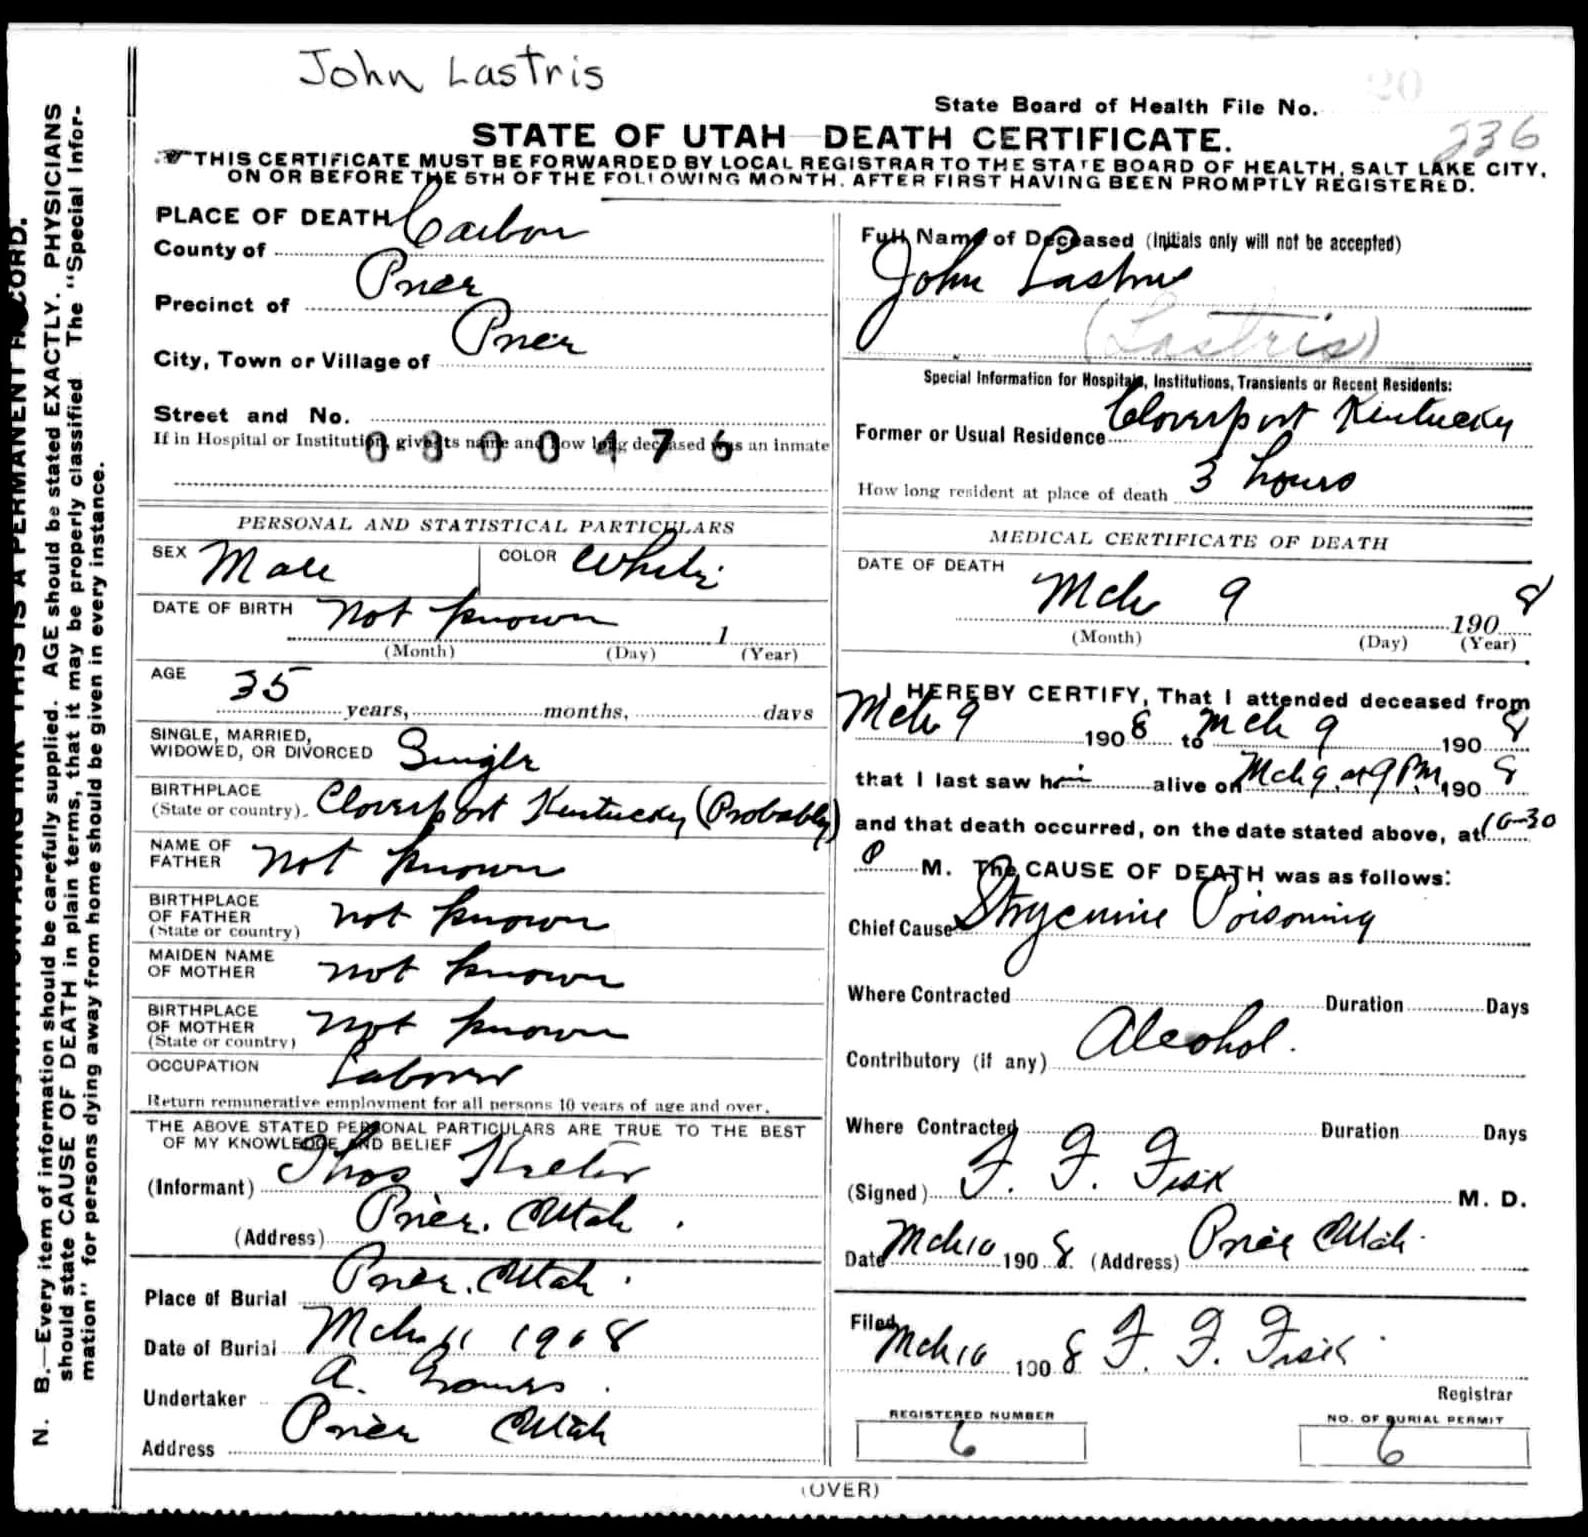 John Lastris
20
State Board of Health File No.
236
STATE OF UTAH—DEATH CERTIFICATE.
THIS CERTIFICATE MUST BE FORWARDED BY LOCAL REGISTRAR TO THE STATE BOARD OF HEALTH, SALT LAKE CITY,
ON OR BEFORE THE 5TH OF THE FOLLOWING MONTH, AFTER FIRST HAVING BEEN PROMPTLY REGISTERED.
PLACE OF DEATH
County of Carbon
Precinct of Price
City, Town or Village of Price
Street and No.
If in Hospital or Institution, give its name and how long deceased was an inmate
0800476
PERSONAL AND STATISTICAL PARTICULARS
SEX Male COLOR White
DATE OF BIRTH Not known 1
(Month) (Day) (Year)
AGE
35 years, months, days
SINGLE, MARRIED,
WIDOWED, OR DIVORCED Single
BIRTHPLACE
(State or country) Cloverport Kentucky (Probably)
NAME OF
FATHER Not known
BIRTHPLACE
OF FATHER not known
(State or country)
MAIDEN NAME
OF MOTHER not known
BIRTHPLACE
OF MOTHER not known
(State or country)
OCCUPATION Laborer
Return remunerative employment for all persons 10 years of age and over.
THE ABOVE STATED PERSONAL PARTICULARS ARE TRUE TO THE BEST
OF MY KNOWLEDGE AND BELIEF
(Informant) Thos
(Address) Price. Utah.
Place of Burial Price. Utah.
Date of Burial Mch 11 1908
Undertaker A.
Address Price Utah
Full Name of Deceased (Initials only will not be accepted)
John Lastris
(Lastris)
Special Information for Hospitals, Institutions, Transients or Recent Residents:
Former or Usual Residence Cloverport Kentucky
How long resident at place of death 3 hours
MEDICAL CERTIFICATE OF DEATH
DATE OF DEATH
Mch 9 1908
(Month) (Day) (Year)
I HEREBY CERTIFY, That I attended deceased from
Mch 9 1908 to Mch 9 1908
that I last saw him alive on Mch 9. at 9 P.M. 1908
and that death occurred, on the date stated above, at 10-30
P M. The CAUSE OF DEATH was as follows:
Chief Cause Strycnine Poisoning
Where Contracted Duration Days
Contributory (if any) Alcohol.
Where Contracted Duration Days
(Signed) F. F. Fisk M. D.
Date Mch 10 1908. (Address) Price Utah.
Filed
Mch 10 1908 F. F. Fisk.
Registrar
REGISTERED NUMBER
6
NO. OF BURIAL PERMIT
6
(OVER)
THIS IS A PERMANENT RECORD.
N. B.—Every item of information should be carefully supplied. AGE should be stated EXACTLY. PHYSICIANS
should state CAUSE OF DEATH in plain terms, that it may be properly classified The "Special Infor-
mation" for persons dying away from home should be given in every instance.